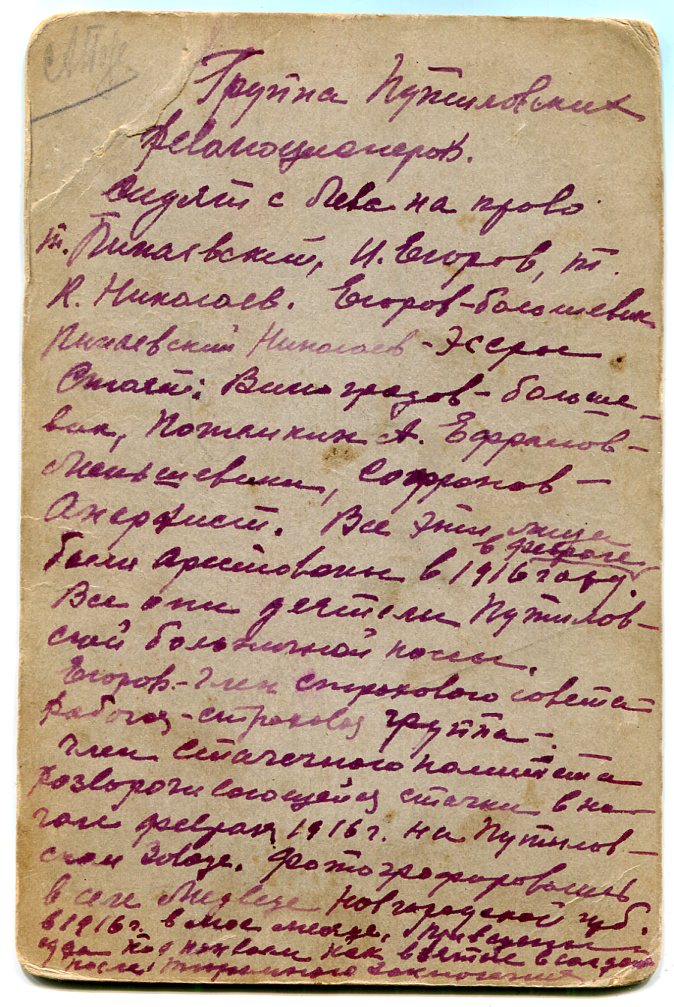 Группа Путиловских
Революционеров.
Сидят с лева на право
т. Пинаевский, И. Егоров, т.
К. Николаев. Егоров - большевик
Пинаевский Николаев - Эсеры.
Стоят: Виноградов - больше-
вик, Поташкин А. Ефрамов -
Меньшевики, Софронов -
Анархист. Все эти лица
в феврале
были арестованы в 1916 году.
Все они деятели Путилов-
ской больничной кассы.
Егоров - член страхового совета
рабочая - страховая группа -.
Член стачечного комитета
разворачивающейся стачки в на-
чале февраля 1916 г. на Путилов-
ском Заводе. Фотографировались
в селе Медведе Новгородской губ.
в 1916 г. в мае месяце, привезены
под конвоем как взятые в солдаты
после тюремного заключения